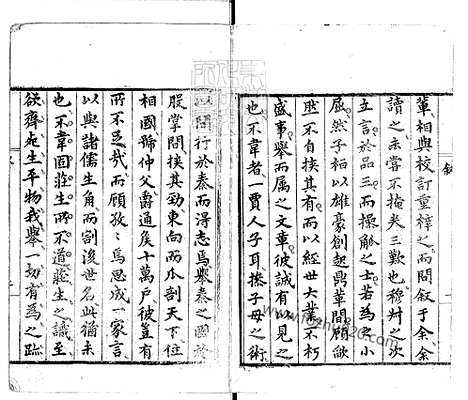 輩相與校訂重梓之而問叙于余余
讀之未嘗不掩矣三歎也穆艸之次
立言於品三而操觚之士若為之小
屈然子桓以雄豪創起鼎革間顧歐
然不自挾其有而以經世大業不朽
盛事舉而属之文章彼誠有以見之
也不韋者一賈人子耳操子母之術
問行於秦而得志焉舉秦之國於
股掌間挾其勁東向而瓜剖天下位
相國號仲父爵通矦十萬戸彼豈有
所不足哉而顧孜〻焉思成一家言
以與諸儒生角而割後世名此猶未
也不韋固莊生所不道莊生之識至
欲齊死生平物我舉一切有為之跡
叙